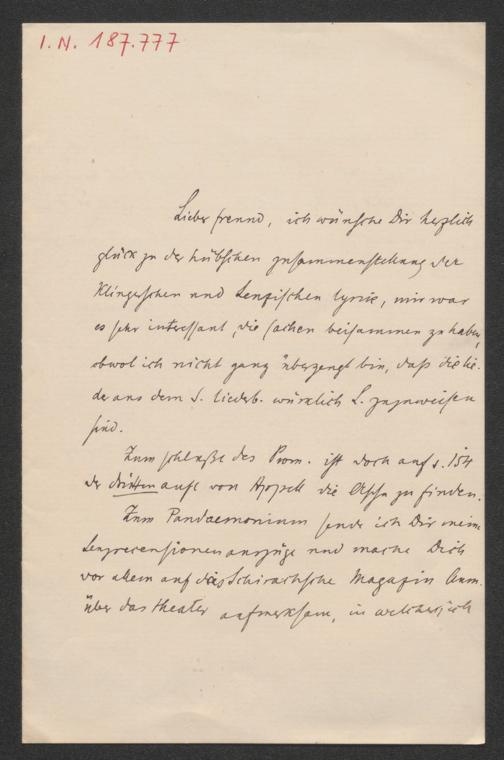 I. N. 187.777
Lieber freund, ich wünsche Dir herzlich
glück zu der hübschen zusammenstellung der
Klingerschen und Lenzischen lyrik, mir war
es sehr interessant, die sachen beisammen zu haben,
obwol ich nicht ganz überzeugt bin, daß die lie-
der aus dem S. liederb. würklich L. zuzuweisen
sind.
Zum schluße des Prom. ist doch auf s. 154
der dritten aufl von Appell die zu finden.
Zum Pandaemonium sende ich Dir meine
Lenzrecensionenauszüge und mache Dich
vor allem auf das Schirachsche Magazin Anm.
über das theater aufmerksam, in welcher ich